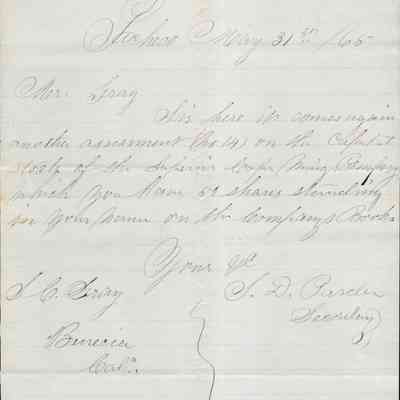 Pacheco May 31st /65
Mr. Gray
Sir here it comes again
another assessment (No 14) on the Capital
stock of the Superior Copper Mining Company
which you have 50 shares standing
in your name on the Company's Books
Yours &c
S. C. Gray
Benicia
Cala
S. D.
Secretary